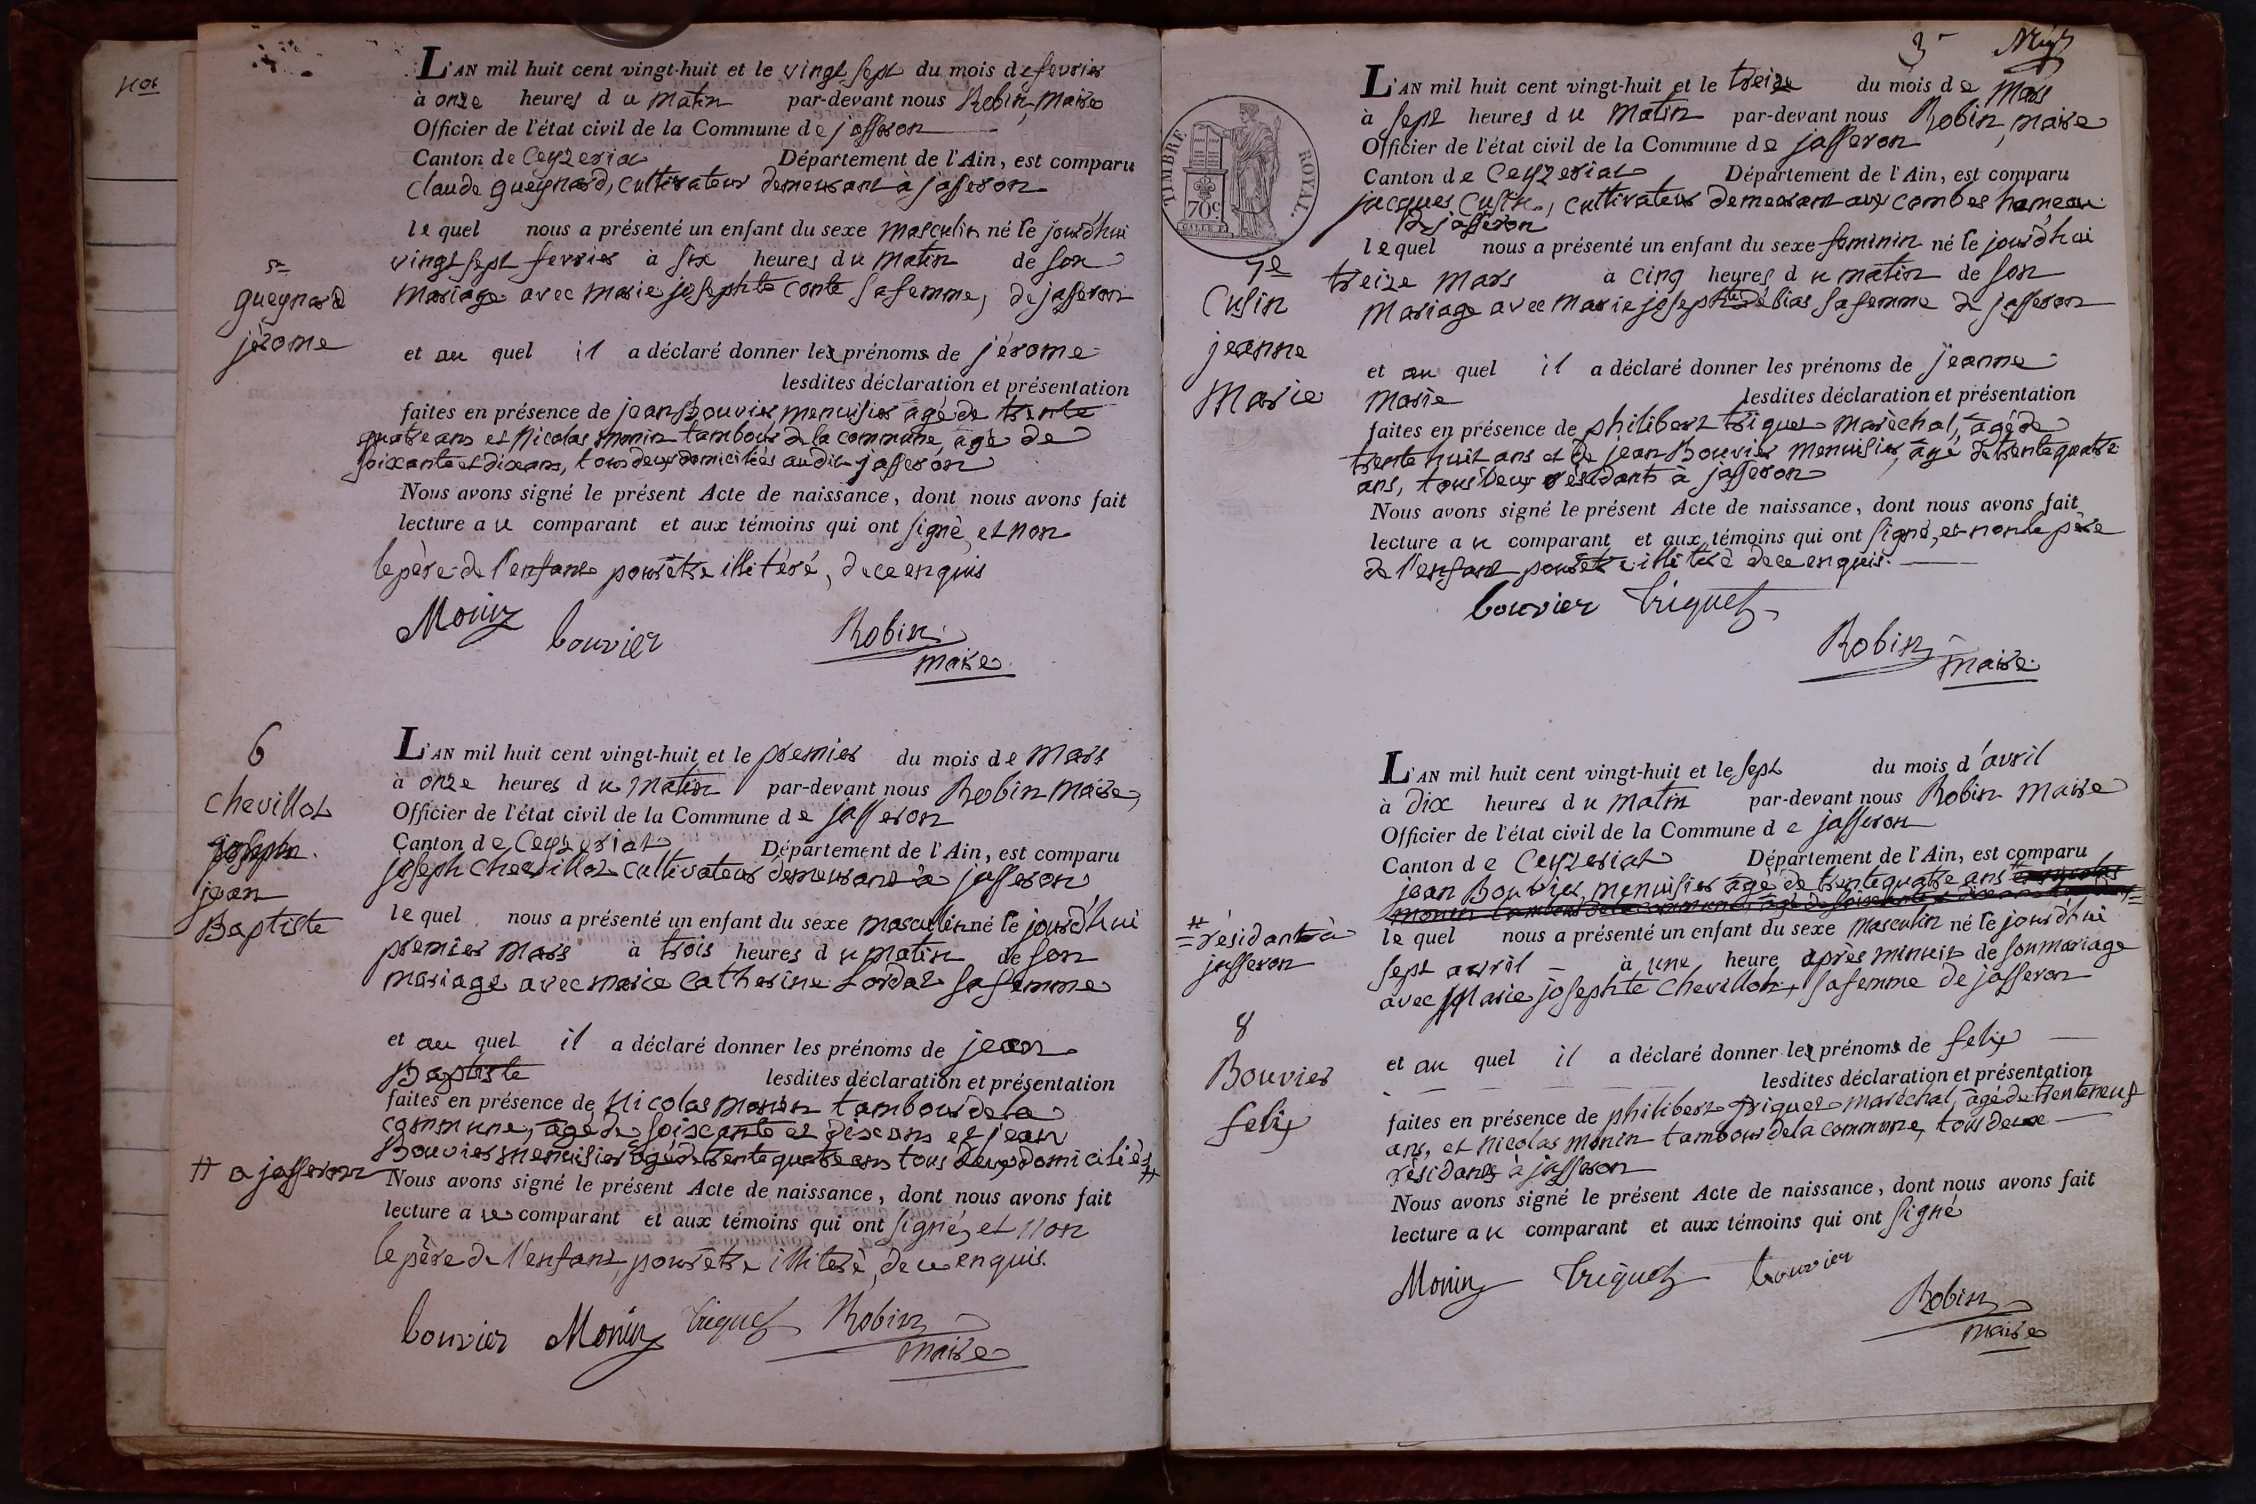 Nos
L'AN mil huit cent vingt-huit et le vingt sept du mois de fevrier
à onze heures du matin par-devant nous Robin, maire
Officier de l'état civil de la Commune de jasseron
Canton de Ceyzeriat Département de l'Ain, est comparu
Claude gueynard, cultivateur demeurant à jasseron
le quel nous a présenté un enfant du sexe masculin né le jourd'hui
vingt sept fevrier à six heures du matin de son
mariage avec marie josephte conte sa femme, de jasseron
5e
gueynard
jèrome
et au quel il a déclaré donner les prénoms de jérome
lesdites déclaration et présentation
faites en présence de jean Bouvier, menuisier agé de trente
quatre ans et Nicolas monin tambour de la commune, agé de
soixante et dix ans, tous deux domiciliés audit jasseron
Nous avons signé le présent Acte de naissance, dont nous avons fait
lecture au comparant et aux témoins qui ont signé, et non
le père de l'enfant pour être illitéré, de ce enquis
Monin bouvier Robin
maire
6
Chevillot
joseph
jean
Baptiste
L'AN mil huit cent vingt-huit et le premier du mois de mars
à onze heures du matin par-devant nous Robin maire,
Officier de l'état civil de la Commune de jasseron
Canton de Ceyzeriat Département de l'Ain, est comparu
joseph chevillot cultivateur demeurant à jasseron
le quel nous a présenté un enfant du sexe masculin né le jourd'hui
premier mars à trois heures du matin de son
mariage avec marie Catherine Lordat sa femme
et au quel il a déclaré donner les prénoms de jean
Baptiste lesdites déclaration et présentation
faites en présence de Nicolas monin tambour de la
commune, agé de soixante et dix ans et jean
Bouvier menuisier agé de trente quatre ans tous deux domiciliés #
# a jasseron
Nous avons signé le présent Acte de naissance, dont nous avons fait
lecture au comparant et aux témoins qui ont signé, et non
le père de l'enfant, pour être illiteré, de ce enquis.
bouvier Monin triquet Robin
maire
3e
TIMBRE ROYAL.
70c
L'AN mil huit cent vingt-huit et le treize du mois de mars
à sept heures du matin par-devant nous Robin, maire
Officier de l'état civil de la Commune de jasseron
Canton de Ceyzeriat Département de l'Ain, est comparu
jacques Cusin, cultivateur demeurant aux combes hameau
de jasseron
le quel nous a présenté un enfant du sexe feminin né le jourd'hui
treize mars à cinq heures du matin de son
mariage avec marie josephte debias sa femme de jasseron
7e
Cusin
jeanne
Marie
et au quel il a déclaré donner les prénoms de jeanne
marie lesdites déclaration et présentation
faites en présence de philibert triquet maréchal, agé de
trente huit ans et de jean Bouvier menuisier, agé de trente quatre
ans, tous deux résidants à jasseron
Nous avons signé le présent Acte de naissance, dont nous avons fait
lecture au comparant et aux témoins qui ont signé, et non le père
de l'enfant pour etre illitéré de ce enquis.
bouvier triquet
Robin
maire
L'AN mil huit cent vingt-huit et le sept du mois d'avril
à dix heures du matin par-devant nous Robin maire
Officier de l'état civil de la Commune de jasseron
Canton de Ceyzeriat Département de l'Ain, est comparu
jean Bouvier, menuisier agé de trente quatre ans et nicolas
monin tambour de la commune, agé de soixante et dix ans
# résidant à
jasseron
le quel nous a présenté un enfant du sexe masculin né le jourd'hui
sept avril à une heure après minuit de son mariage
avec Marie josephte chevillot, sa femme de jasseron
8
Bouvier
felix
et au quel il a déclaré donner les prénoms de felix
lesdites déclaration et présentation
faites en présence de philibert triquet maréchal, agé de trente neuf
ans, et nicolas monin tambour de la commune, tous deux
résidants à jasseron
Nous avons signé le présent Acte de naissance, dont nous avons fait
lecture au comparant et aux témoins qui ont signé
Monin triquet bouvier
Robin
maire